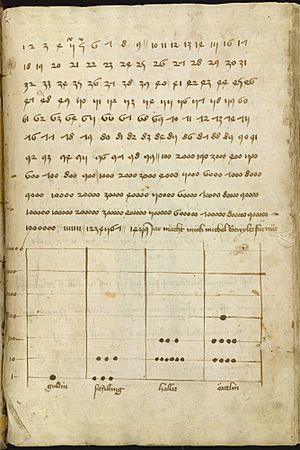 1 2 3 4 5 6 7 8 9 10 11 12 13 14 15 16 17
18 19 20 21 22 23 24 25 26 27 28 29 30 31
32 33 34 35 36 37 38 39 40 41 42 43 44 45 46
47 48 49 50 51 52 53 54 55 56 57 58 59 60
61 62 63 64 65 66 67 68 69 70 71 72 73 74 75
76 77 78 79 80 81 82 83 84 85 86 87 88 89 90 91
92 93 94 95 96 97 98 99 100 200 300 400 500
600 700 800 900 1000 2000 3000 4000 5000 6000 7000 8000
9000 10000 20000 30000 40000 50000 60000 70000 80000 90000
100000 200000 300000 400000 500000 600000 700000 800000 900000
1000000 1234567 Jar macht mich michel
100
10
1
guldin schilling haller örttlin